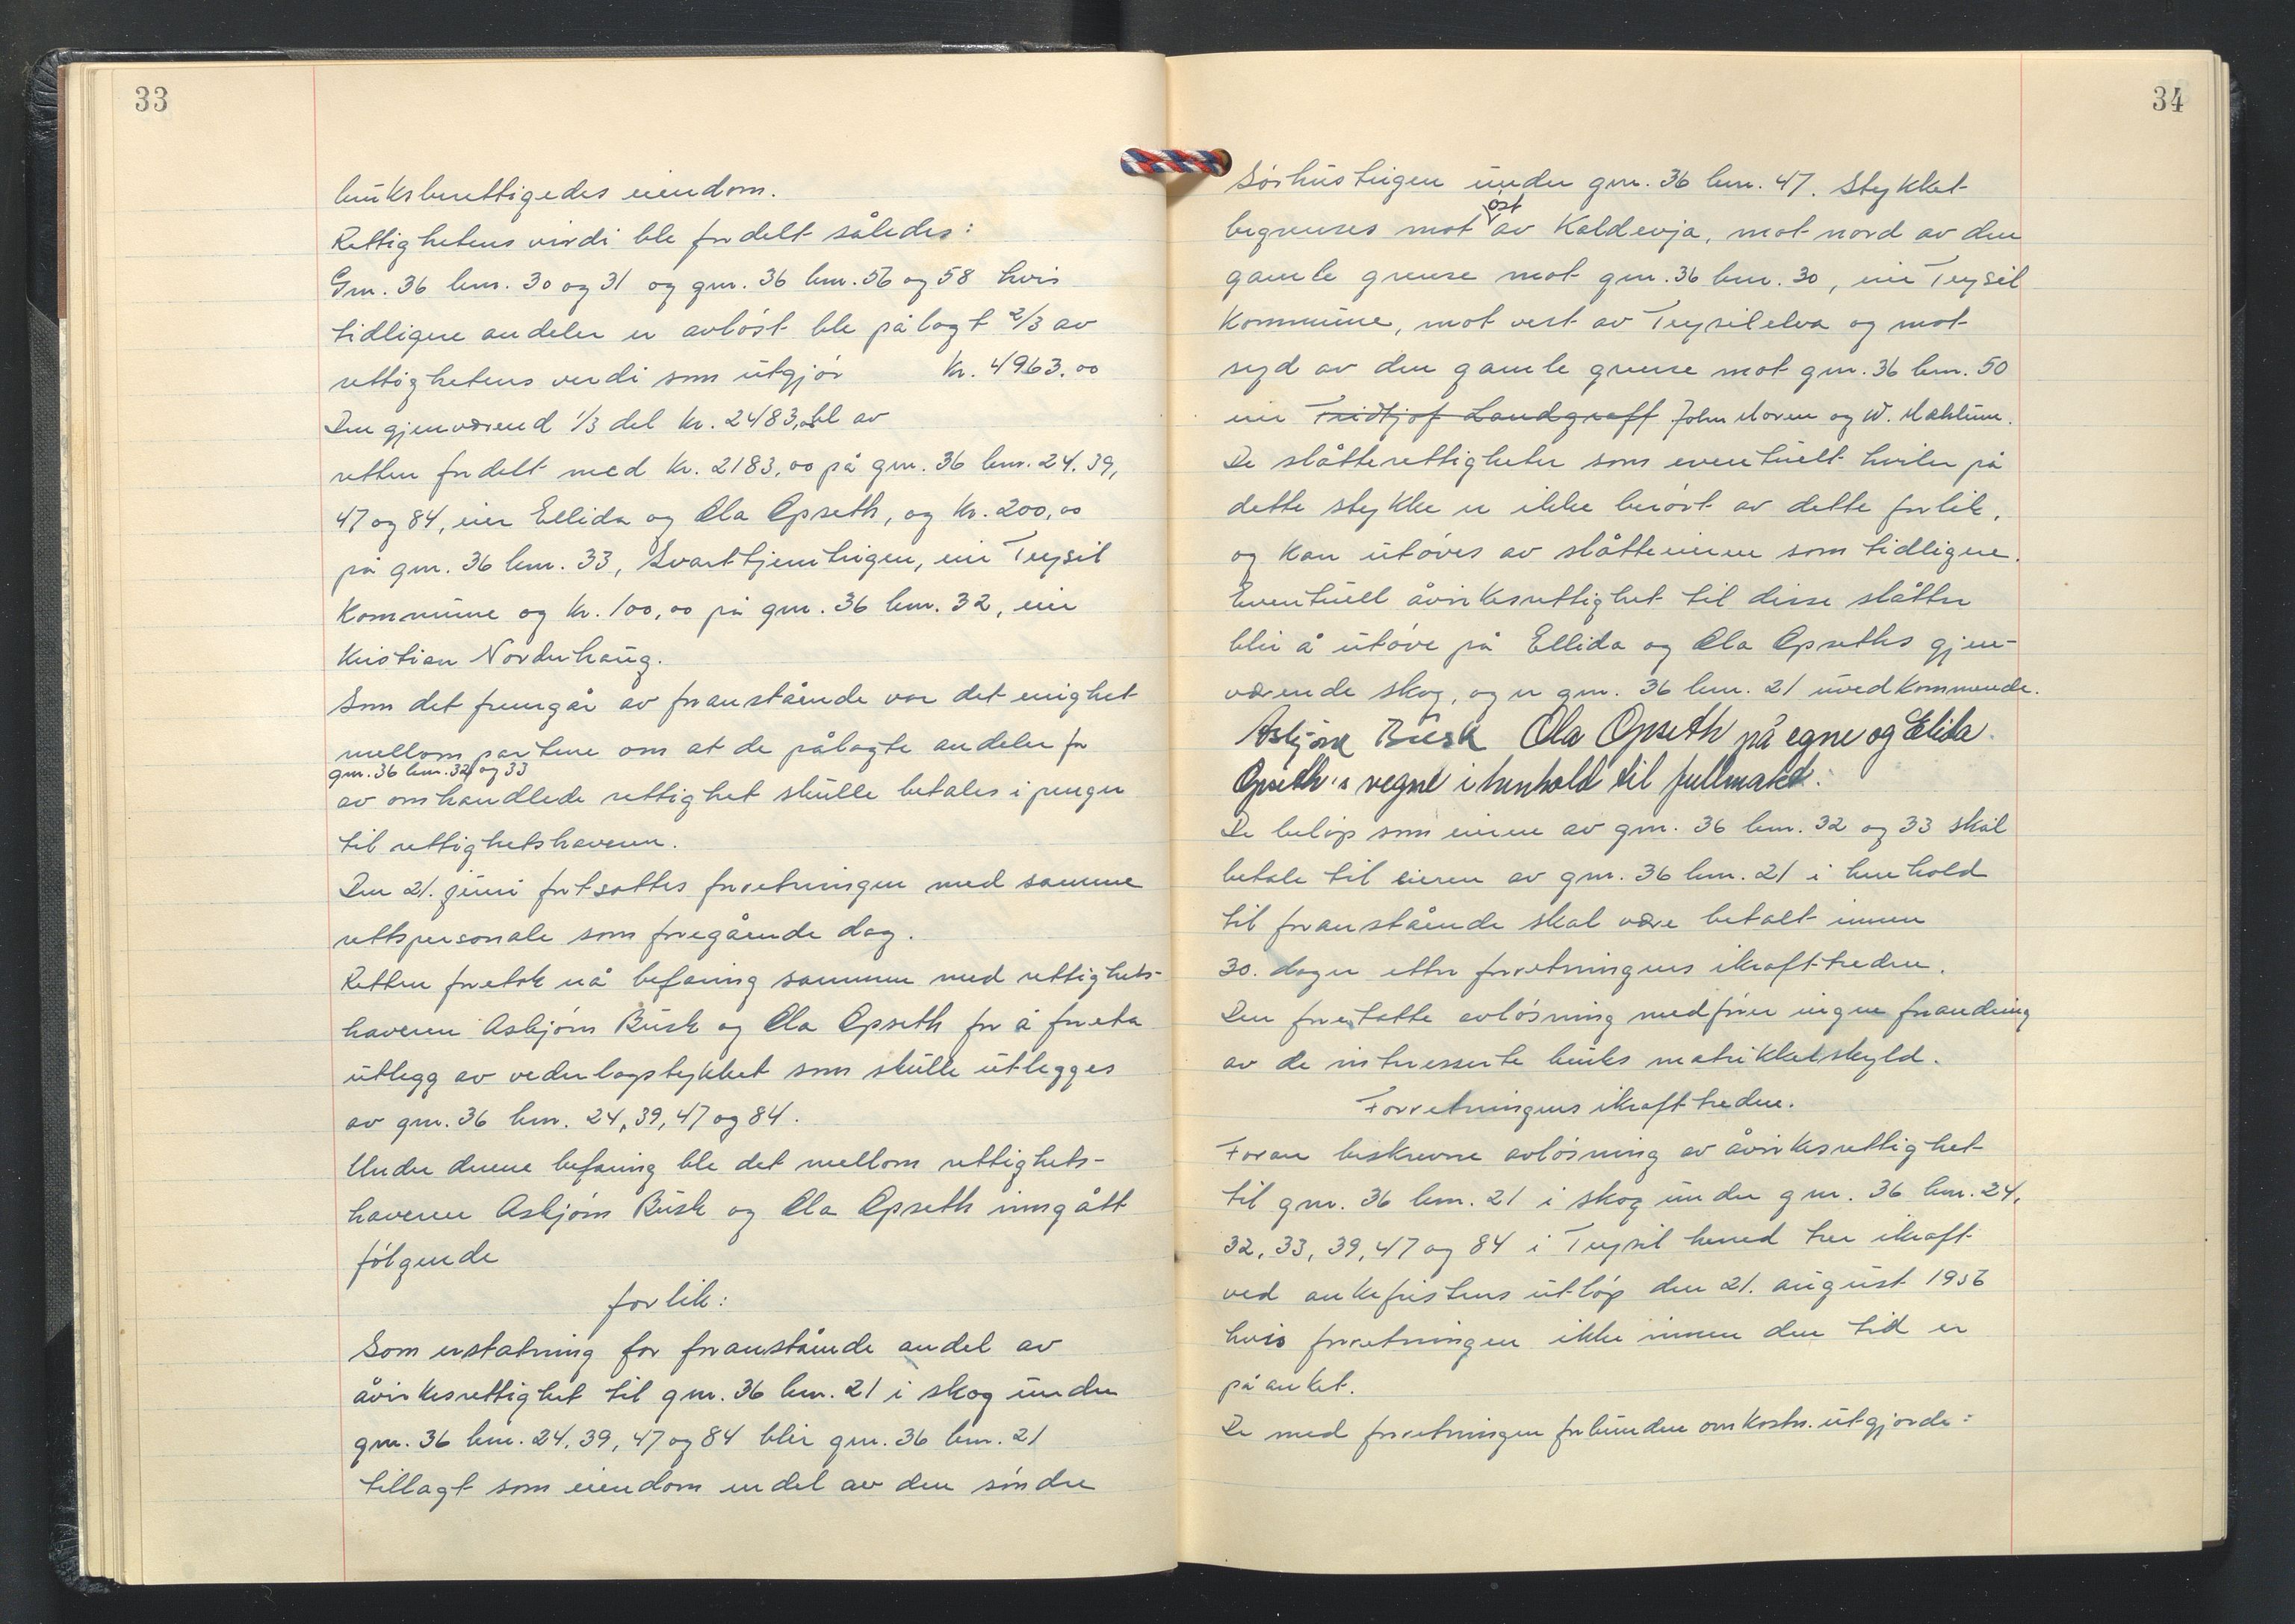 33
bruksberettigedes eiendom.
Rettighetens verdi ble fordelt således:
Gnr. 36 bnr. 30 og 31 og gnr. 36 bnr. 56 og 58 hvis
tidligere andeler er avløst ble pålagt 2/3 av
rettighetens verdi som utgjør kr. 4963.00
Den gjenværend 1/3 del kr. 2483,00 bl av
retten fordelt med kr. 2183,00 på gnr. 36 bnr. 24, 39,
47 og 84, eier Ellida og Ola Opseth, og kr. 200,00
på gnr. 36 bnr. 33, Svarttjernteigen, eier Trysil
Kommune og kr. 100,00 på gnr. 36 bnr. 32, eier
Kristian Norderhaug.
Som det fremgår av foranstående var det enighet
mellom partene om at de pålagte andeler for
gnr. 36 bnr. 32 og 33
av omhandlede rettighet skulle betales i penger
til rettighetshaveren.
Den 21. juni fortsattes forretningen med samme
rettspersonale som foregående dag.
Retten foretok nå befaring sammen med rettighets-
haveren Asbjørn Busk og Ola Opseth for å foreta
utlegg av vederlagstykket som skulle utlegges
av gnr. 36 bnr. 24, 39, 47 og 84.
Under denne befaring ble det mellom rettighets-
haveren Asbjørn Busk og Ola Opseth inngått
følgende
forlik:
Som erstatning for foranstående andel av
åvirkesrettighet til gnr. 36 bnr. 21 i skog under
gnr. 36 bnr. 24, 39, 47 og 84 blir gnr. 36 bnr. 21
tillagt som eiendom en del av den søndre
34
Sørhusteigen under gnr. 36 bnr. 47. Stykket
øst
begrenses mot av Kaldevja, mot nord av den
gamle grense mot gnr. 36 bnr. 30, eier Trysil
Kommune, mot vest av Trysilelva og mot
syd av den gamle grense mot gnr. 36 bnr. 50
eier Fridtjof Landgraff John Moren og W. Mæhlum.
De slåtterettigheter som eventuelt hviler på
dette stykke er ikke berørt av dette forlik,
og kan utøves av slåtteeieren som tidligere.
Eventuell åvirkesrettighet til disse slåtter
blir å utøve på Ellida og Ola Opseths gjen-
værende skog, og er gnr. 36 bnr. 21 uvedkommende.
Asbjørn Busk Ola Opseth på egne og Elida
Opseth's vegne i henhold til fullmakt.
De beløp som eierne av gnr. 36 bnr. 32 og 33 skal
betale til eieren av gnr. 36 bnr. 21 i henhold
til foranstående skal være betalt innen
30. dager etter forretningens ikrafttreden.
Den foretatte avløsning medfører ingen forandring
av de intresserte bruks matrikkelskyld.
Forretningens ikrafttreden.
Foran beskrevne avløsning av åvirkesrettighet
til gnr. 36 bnr. 21 i skog under gnr. 36 bnr. 24,
32, 33, 39, 47 og 84 i Trysil herred trer ikraft
ved ankefristens utløp den 21. august 1956
hvis forretningen ikke innen den tid er
påanket.
De med forretningen forbundne omkostn. utgjorde: